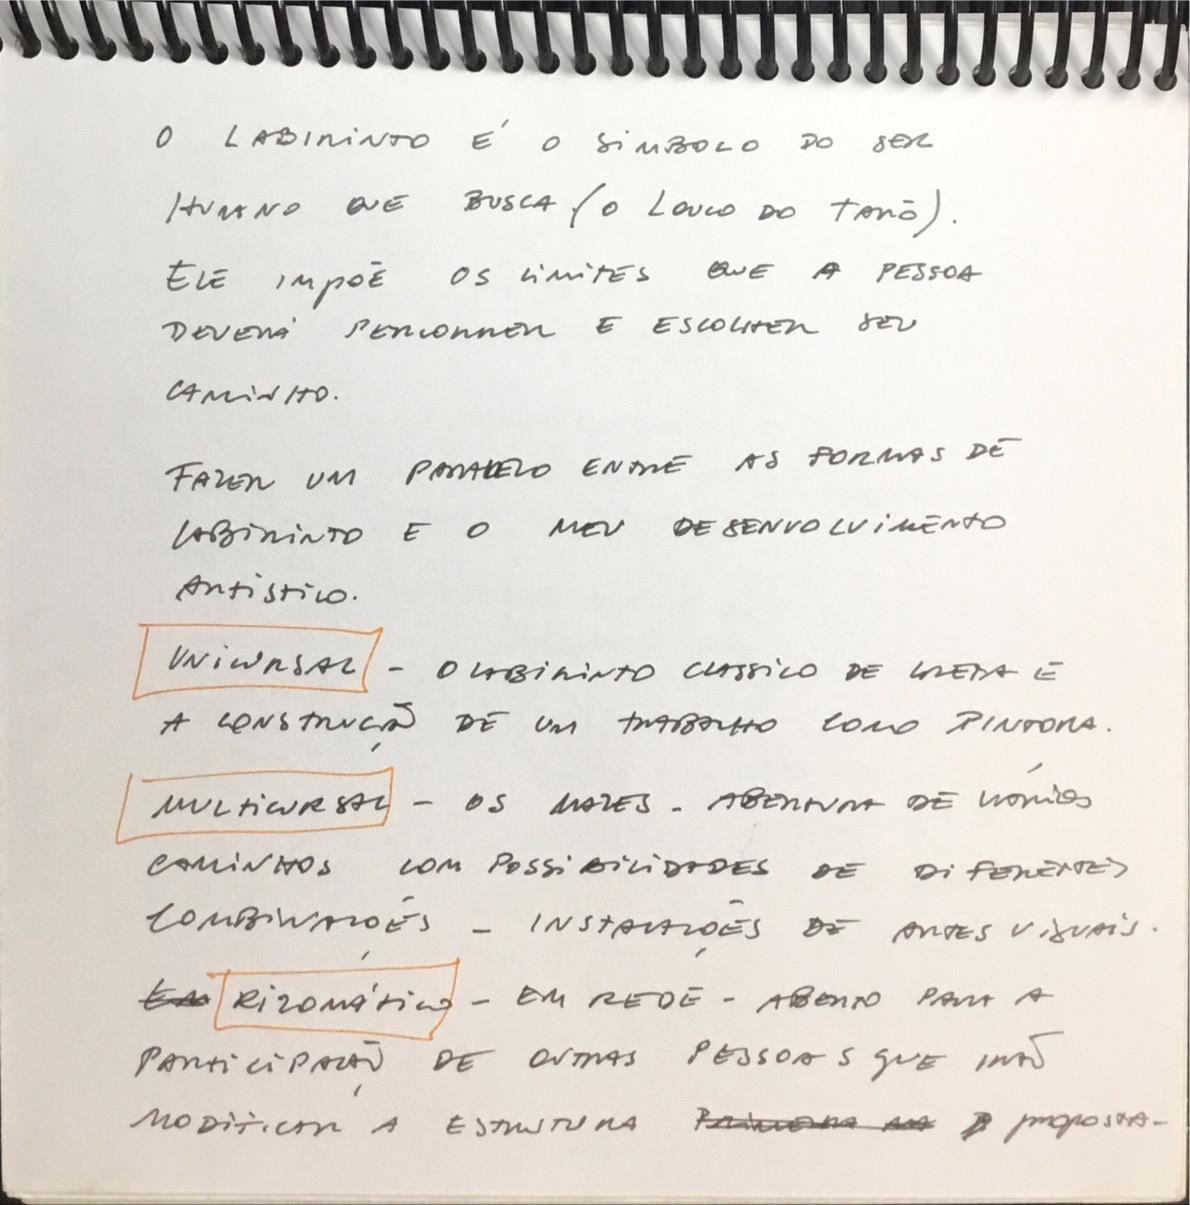 O LABIRINTO É O SIMBOLO DO SER
HUMANO QUE BUSCA (O LOUCO DO TARÔ).
ELE IMPÕE OS LIMITES QUE A PESSOA
DEVERÁ PERCORRER E ESCOLHER SEU
CAMINHO.
FAZER UM PARALELO ENTRE AS FORMAS DE
LABIRINTO E O MEU DESENVOLVIMENTO
ARTISTICO.
UNICURSAL - O LABIRINTO CLASSICO DE CRETA E
A CONSTRUÇÃO DE UM TRABALHO COMO PINTORA.
MULTICURSAL - OS MAZES - ABERTURA DE VÁRIOS
CAMINHOS COM POSSIBILIDADES DE DIFERENTES
COMBINAÇÕES - INSTALAÇÕES DE ARTES VISUAIS.
EM RIZOMÁTICO - EM REDE - ABERTO PARA A
PARTICIPAÇÃO DE OUTRAS PESSOAS QUE IRÃO
MODIFICAR A ESTRUTURA PROPOSTA-